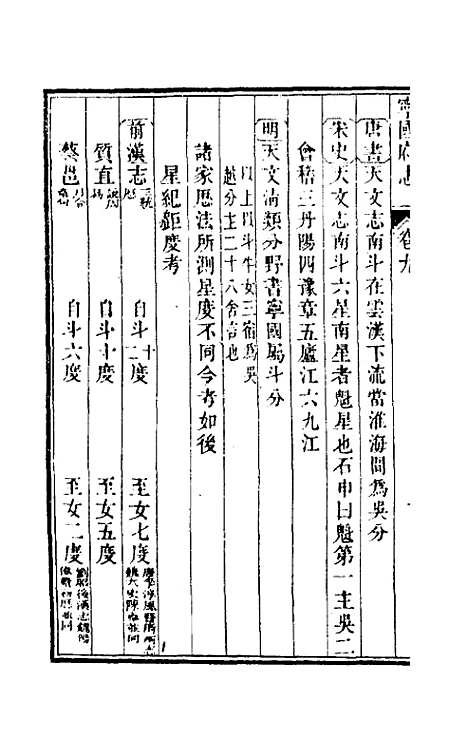 寧國府志 卷九
唐書天文志南斗在雲漢下流當淮海間為吳分
宋史天文志南斗六星南星者魁星也石申曰魁第一主吳二
會稽三丹陽四豫章五廬江六九江
明天文清類分野書寧國屬斗分
以上以斗牛女三宿為吳
越分主二十八舍言也
諸家歷法所測星度不同今考如後
星紀距度考
前漢志三統歷 自斗十二度 至女七度
費直 自斗十度 至女五度
蔡邕月令章句 自斗六度 至女二度